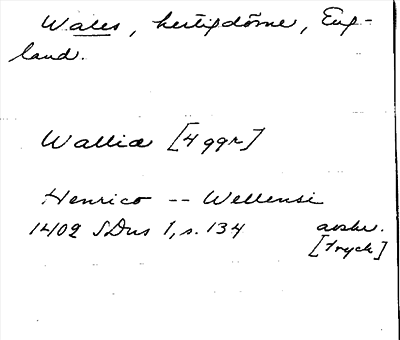 Wales, hertigdöme, Eng-
land.
Walliæ [4 ggr]
Henrico -- Wellensi
1402 SDns 1, s. 134 avskr.
[tryck]